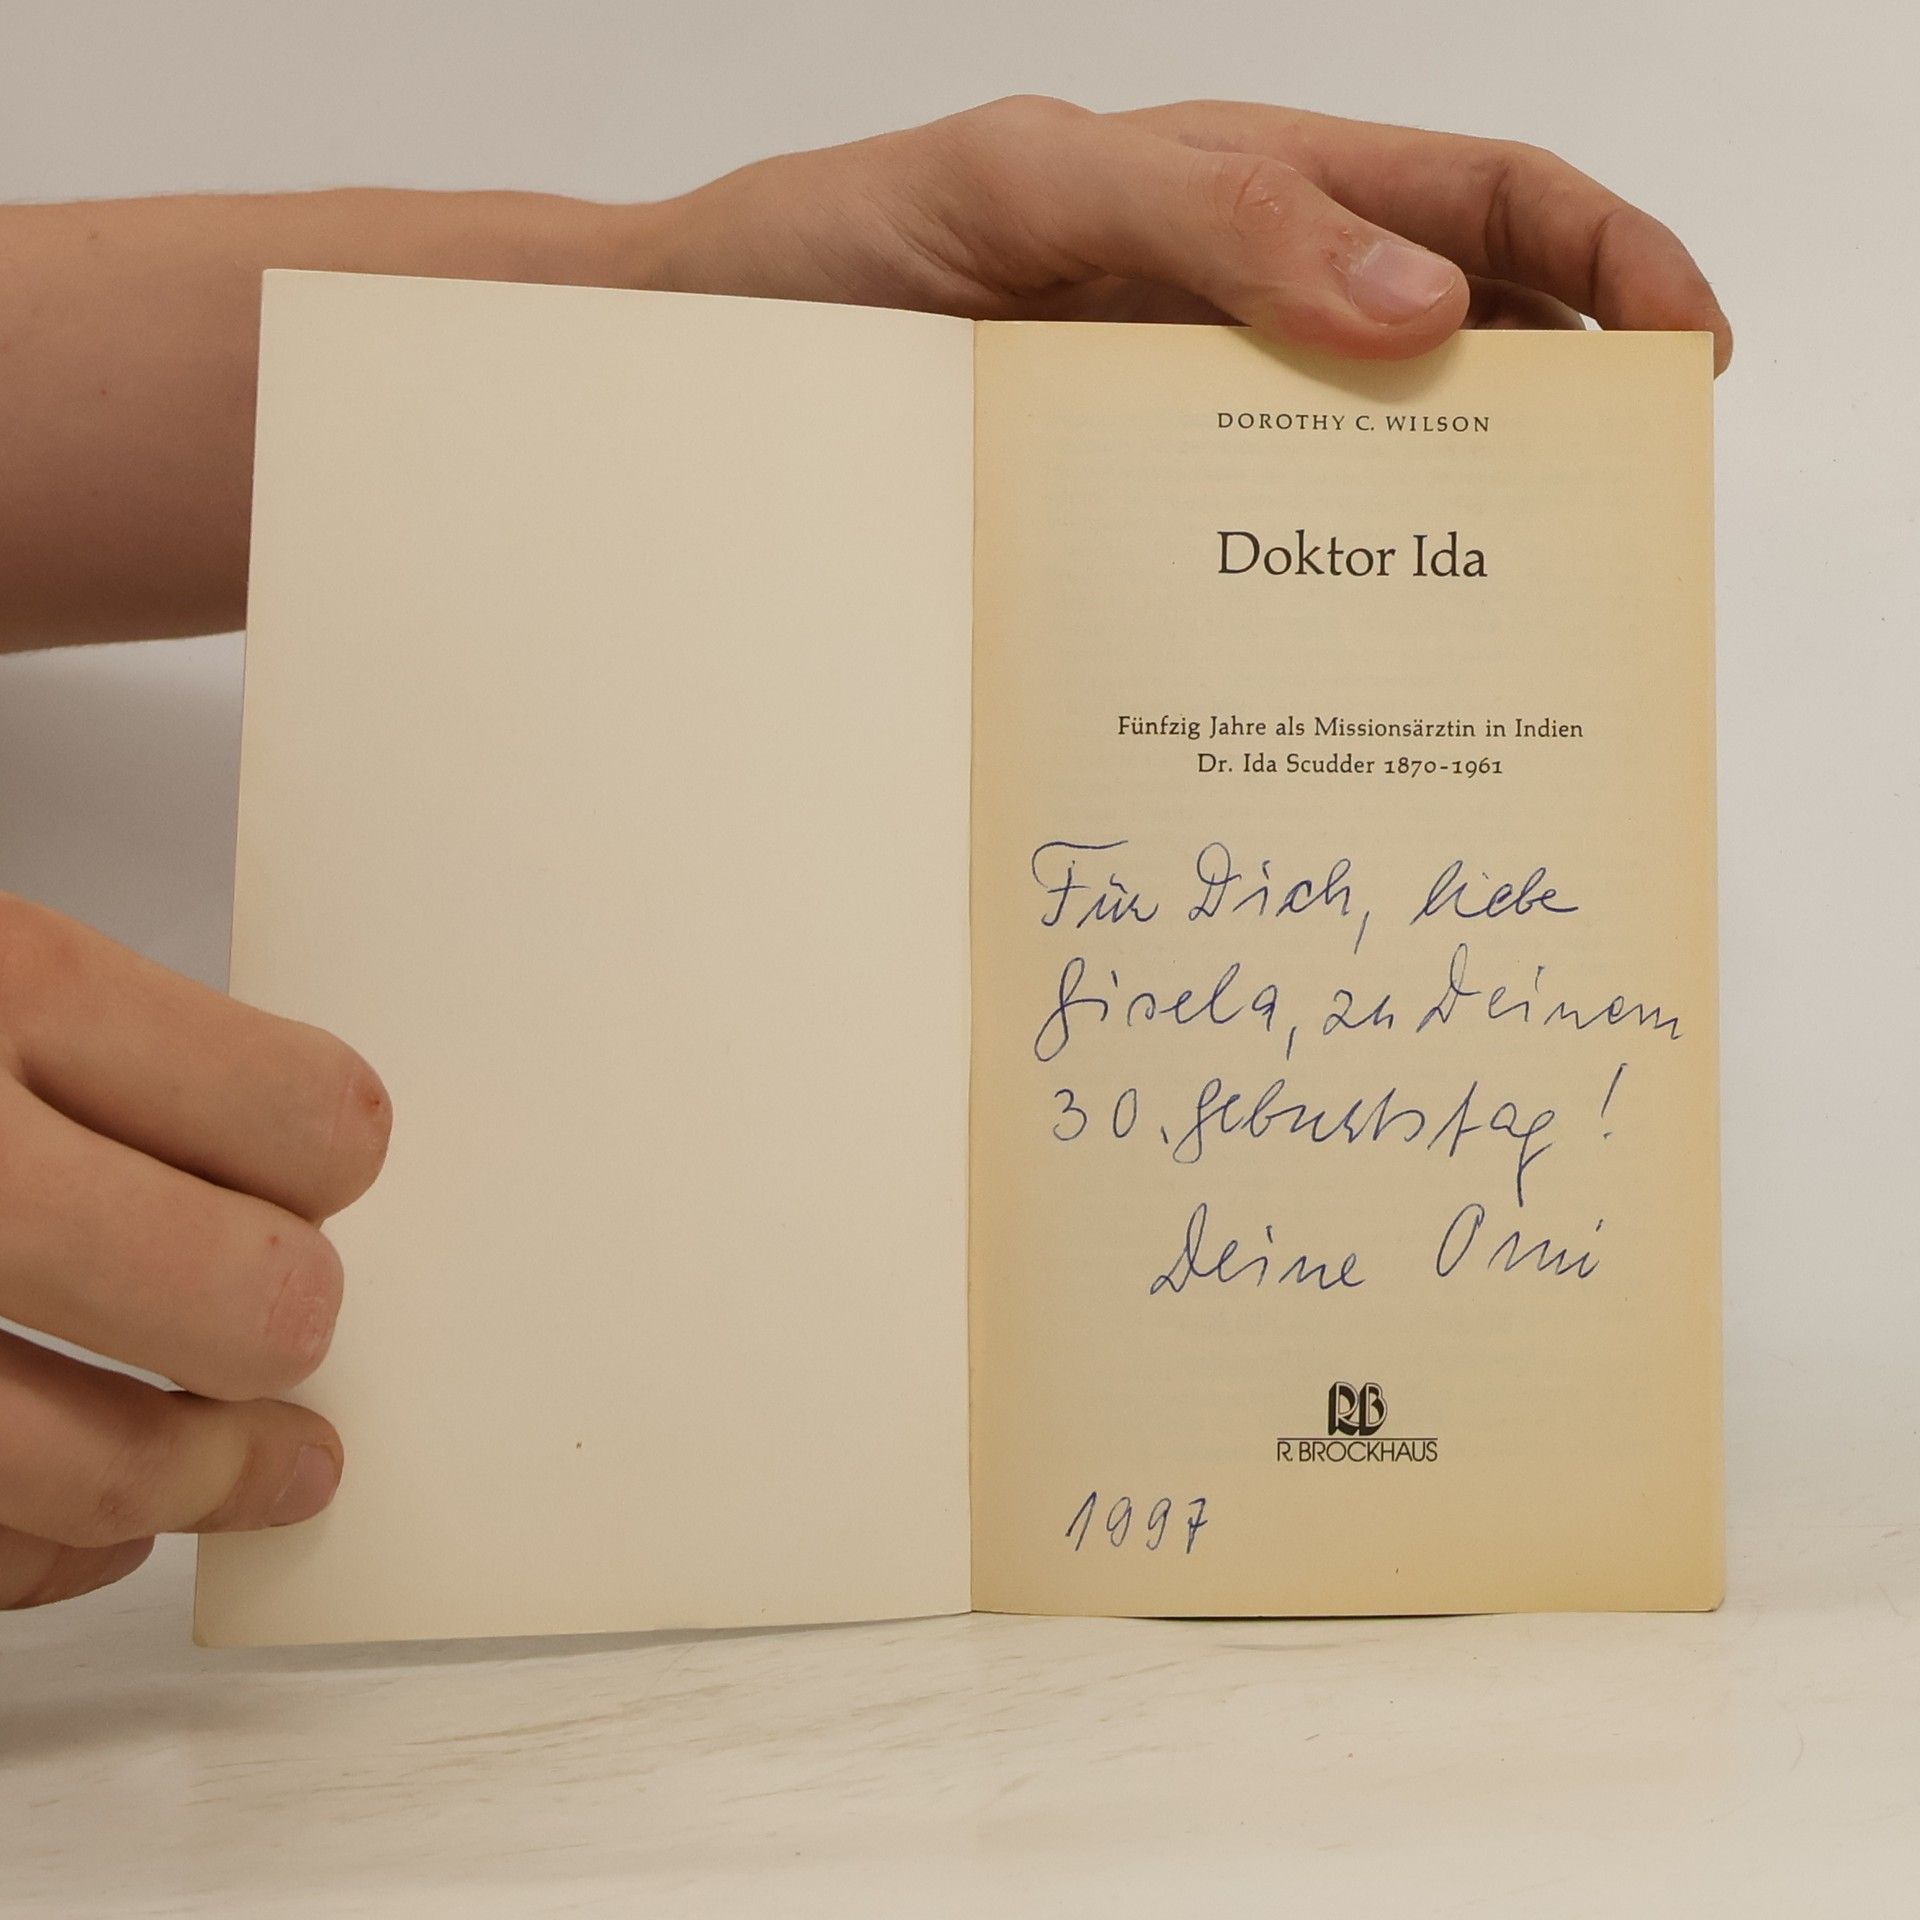 DOROTHY C. WILSON
Doktor Ida
Fünfzig Jahre als Missionsärztin in Indien
Dr. Ida Scudder 1870-1961
Für Dich, liebe
Gisela, zu Deinem
30. Geburtstag!
Deine Omi
RB
R. BROCKHAUS
1997